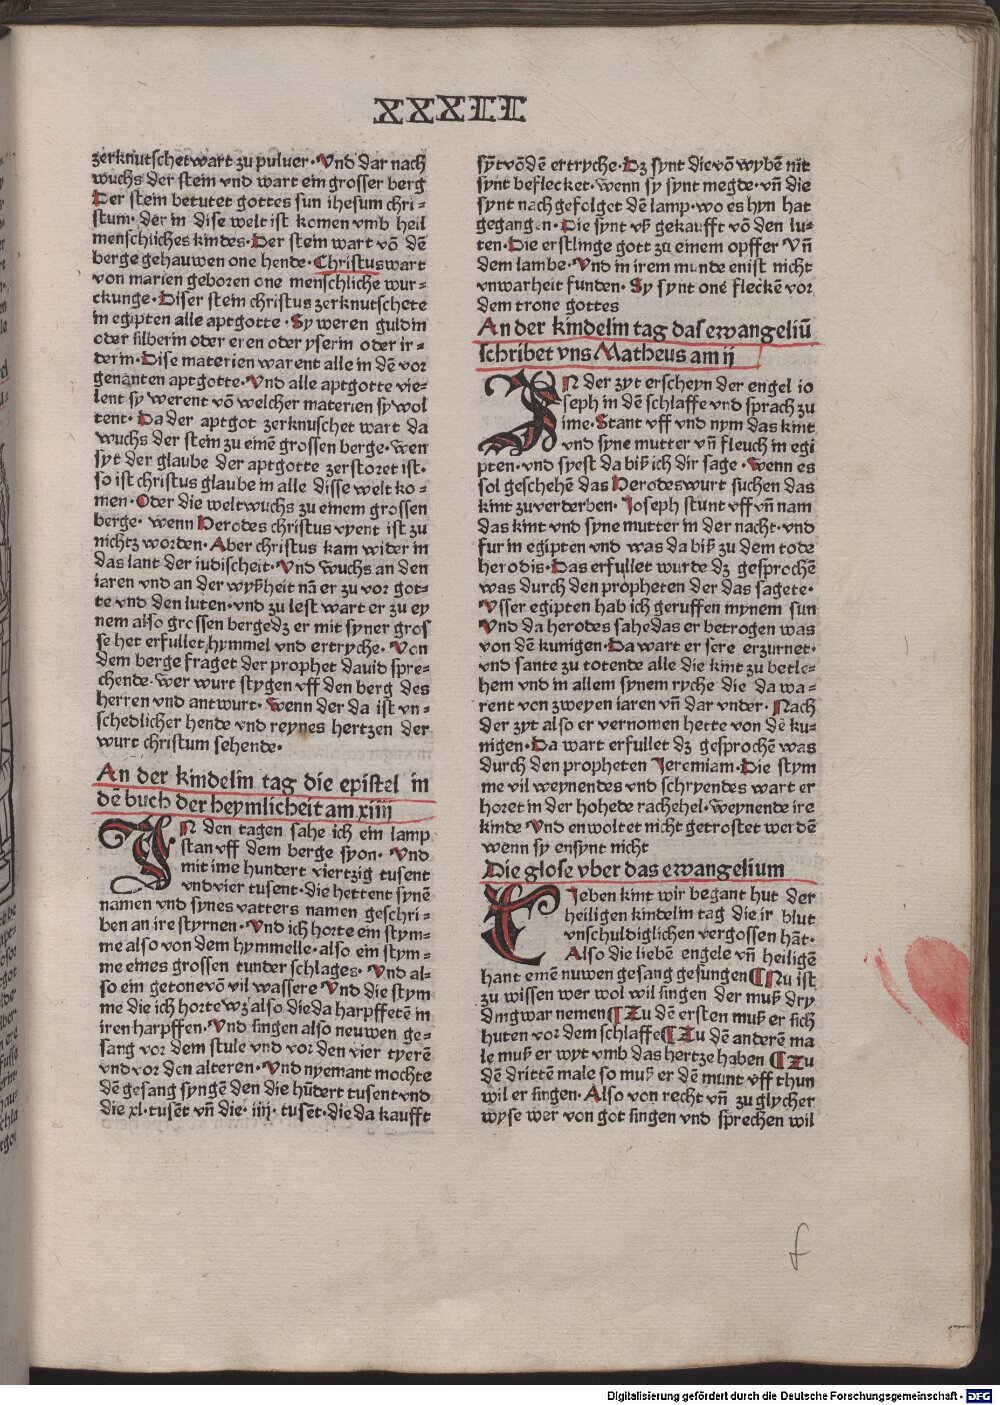 XXXII
zerknutschet wart zu puluer· Vnd dar nach
wuchs der stein vnd wart ein grosser berg
Der stein betutet gottes sun ihesum chri-
stum· der in dise welt ist komen vmb heil
menschliches kindes· Der stein wart vō dē
berge gehauwen one hende· Christus wart
von marien geboren one menschliche wur-
ckunge· Diser stein christus zerknutschete
in egipten alle aptgotte· Sy weren guldin
oder silberin oder eren oder yserin oder ir-
derin· Dise materien warent alle in dē vor
genanten aptgotte· Vnd alle aptgotte vie-
lent sy werent vō welcher materien sy wol
tent· Da der aptgot zerknuschet wart da
wuchs der stein zu einē grossen berge· wen
syt der glaube der aptgotte zerstoret ist·
so ist christus glaube in alle disse welt ko-
men· Oder die welt wuchs zu einem grossen
berge· wenn Herodes christus vyent ist zu
nichtz worden· Aber christus kam wider in
das lant der iudischeit· Vnd wuchs an den
iaren vnd an der wyßheit nā er zu vor got-
te vnd den luten· vnd zu lest wart er zu ey
nem also grossen berge dz er mit syner gros
se het erfullet hymmel vnd ertryche· Von
dem berge fraget der prophet dauid spre-
chende· wer wurt stygen vff den berg des
herren vnd antwurt· Wenn der da ist vn-
schedlicher hende vnd reynes hertzen der
wurt christum sehende·
An der kindelin tag die epistel in
dē buch der heymlicheit am xiiii
IN den tagen sahe ich ein lamp
stan vff dem berge syon· Vnd
mit ime hundert viertzig tusent
vnd vier tusent· die hettent synē
namen vnd synes vatters namen geschri-
ben an ire styrnen· Vnd ich horte ein stym-
me also von dem hymmelle· also ein stym-
me eines grossen tunder schlages· Vnd al-
so ein getone vō vil wassere Vnd die stym
me die ich horte wz also die da harpffetē in
iren harpffen· Vnd singen also neuwen ge-
sang vor dem stule vnd vor den vier tyerē
vnd vor den alteren· Vnd nyemant mochte
dē gesang syngē den die hūdert tusent vnd
die xl· tusēt vn̄ die· iiij· tusēt· die da kaufft
sȳt vō dē ertryche· Dz synt die vō wybē nit
synt beflecket· wenn sy synt megde· vn̄ die
synt nach gefolget dē lamp· wo es hyn hat
gegangen· Die synt vß gekaufft vō den lu-
ten· Die erstlinge gott zu einem opffer Vn̄
dem lambe· Vnd in irem munde enist nicht
vnwarheit funden· Sy synt one fleckē vor
dem trone gottes
An der kindelin tag das ewangeliū
schribet vns Matheus am ij
IN der zyt erscheyn der engel io
seph in dē schlaffe vnd sprach zu
ime· Stant vff vnd nym das kint
vnd syne mutter vn̄ fleuch in egi
pten· vnd syest da biß ich dir sage· Wenn es
sol geschehē das Herodes wurt suchen das
kint zu verderben· Joseph stunt vff vn̄ nam
das kint vnd syne mutter in der nacht· vnd
fur in egipten vnd was da biß zu dem tode
herodis· Das erfullet wurde dz gesprochē
was durch den propheten der das sagete·
Vsser egipten hab ich geruffen mynem sun
Vnd da herodes sahe das er betrogen was
von dē kunigen· Da wart er sere erzurnet·
vnd sante zu totende alle die kint zu betle-
hem vnd in allem synem ryche die da wa-
rent von zweyen iaren vn̄ dar vnder· Nach
der zyt also er vernomen hette von dē ku-
nigen· Da wart erfullet dz gesprochē was
durch den propheten Jeremiam· Die stym
me vil weynendes vnd schryendes wart er
horet in der hohede rachehel· weynende ire
kinde Vnd en woltet nicht getrostet werdē
wenn sy ensynt nicht
Die glose vber das ewangelium
Lieben kint wir begant hut der
heiligen kindelin tag die ir blut
vnschuldiglichen vergossen hāt·
Also die liebē engele vn̄ heiligē
hant einē nuwen gesang gesungen ¶ Nu ist
zu wissen wer wol wil singen der muß dry
ding war nemen ¶ Zu dē ersten muß er sich
huten vor dem schlaffe ¶ Zu dē anderē ma
le muß er wyt vmb das hertze haben ¶ Zu
dē drittē male so muß er dē munt vff thun
wil er singen· Also von recht vn̄ zu glycher
wyse wer von got singen vnd sprechen wil
f
Digitalisierung gefördert durch die Deutsche Forschungsgemeinschaft - DFG